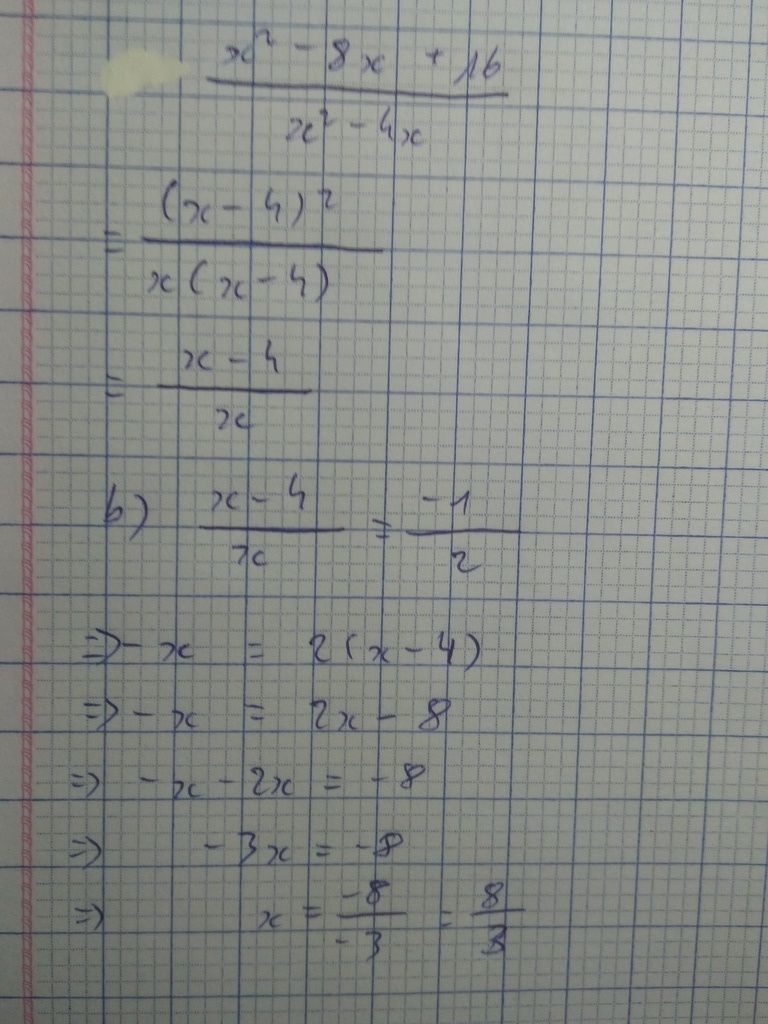 x² - 8x + 16
x² - 4x
= (x - 4)²
x(x - 4)
= x - 4
x
b) x - 4 = -1
x 2
⇒ - x = 2(x - 4)
⇒ - x = 2x - 8
⇒ - x - 2x = - 8
⇒ - 3x = - 8
⇒ x = -8 = 8
-3 3